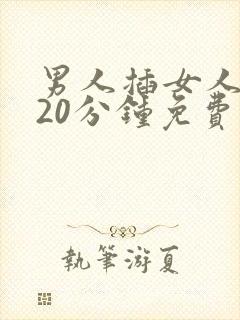 男人插女人
20分鍾免費
執筆游夏